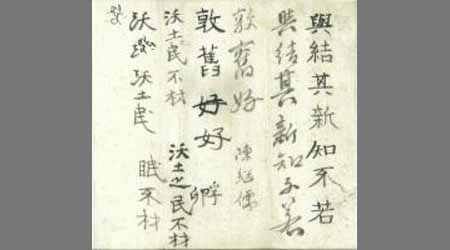 與結其新知不若
與結其新知不若
敦舊好 陳繼儒
敦舊好好
沃土民不材 沃土之民不材
沃沃土民
眠不材